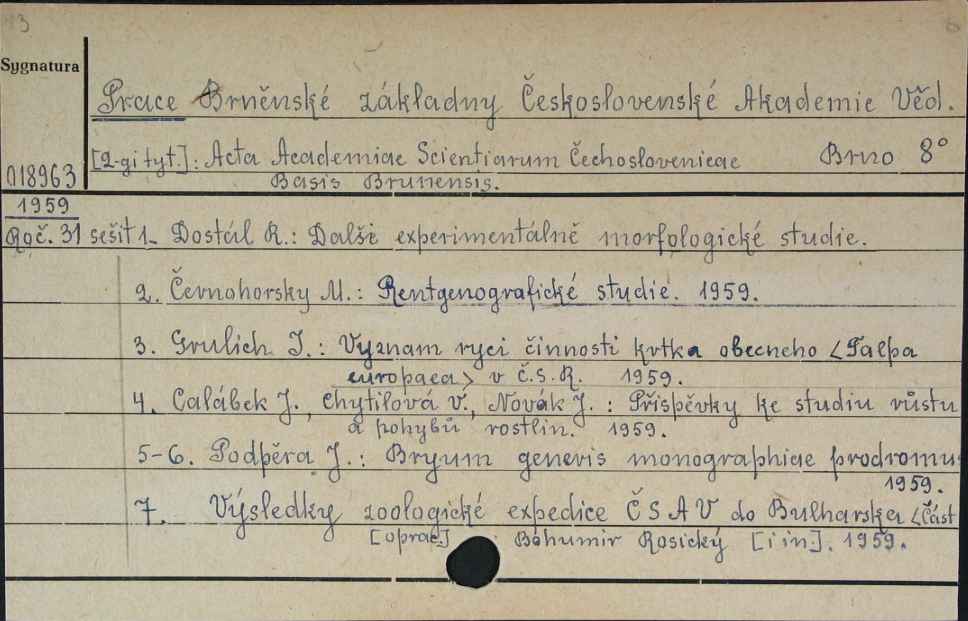 13
Sygnatura
Prace Brněnské základny Československé Akademie Věd.
[2-gi tyt.]: Acta Academiae Scientiarum Čechoslovenicae Brno 8°
018963 Basis Brunensis.
1959
Roč. 31 sešit 1. Dostál R.: Dalši experimentálně morfologické studie.
2. Černohorsky M.: Rentgenografické studie. 1959.
3. Grulich J.: Vyznam ryci činnosti krtka obecneho <Talpa
europaea> v Č.S.R. 1959.
4. Calábek J., Chytilová V., Novák J.: Přispěvky ke studiu růstu
a pohybů rostlin. 1959.
5-6. Podpěra J.: Bryum generis monographiae prodromus
1959.
7. Výsledky zoologické expedice ČSAV do Bulharska <Část
[oprac.] Bohumir Rosický [i in]. 1959.